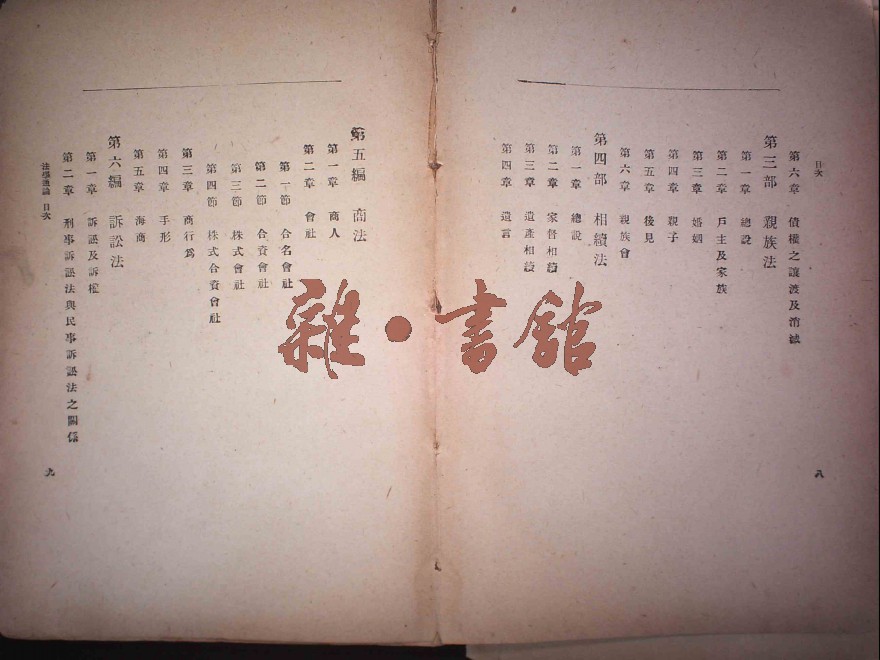 目次
第六章 債權之讓渡及消滅
第三部 親族法
第一章 總説
第二章 戶主及家族
第三章 婚姻
第四章 親子
第五章 後見
第六章 親族會
第四部 相續法
第一章 總説
第二章 家督相續
第三章 遺產相續
第四章 遺言
八
第五編 商法
第一章 商人
第二章 會社
第一節 合名會社
第二節 合資會社
第三節 株式會社
第四節 株式合資會社
第三章 商行爲
第四章 手形
第五章 海商
第六編 訴訟法
第一章 訴訟及訴權
第二章 刑事訴訟法與民事訴訟法之關係
法學通論 目次
九
雜·書館